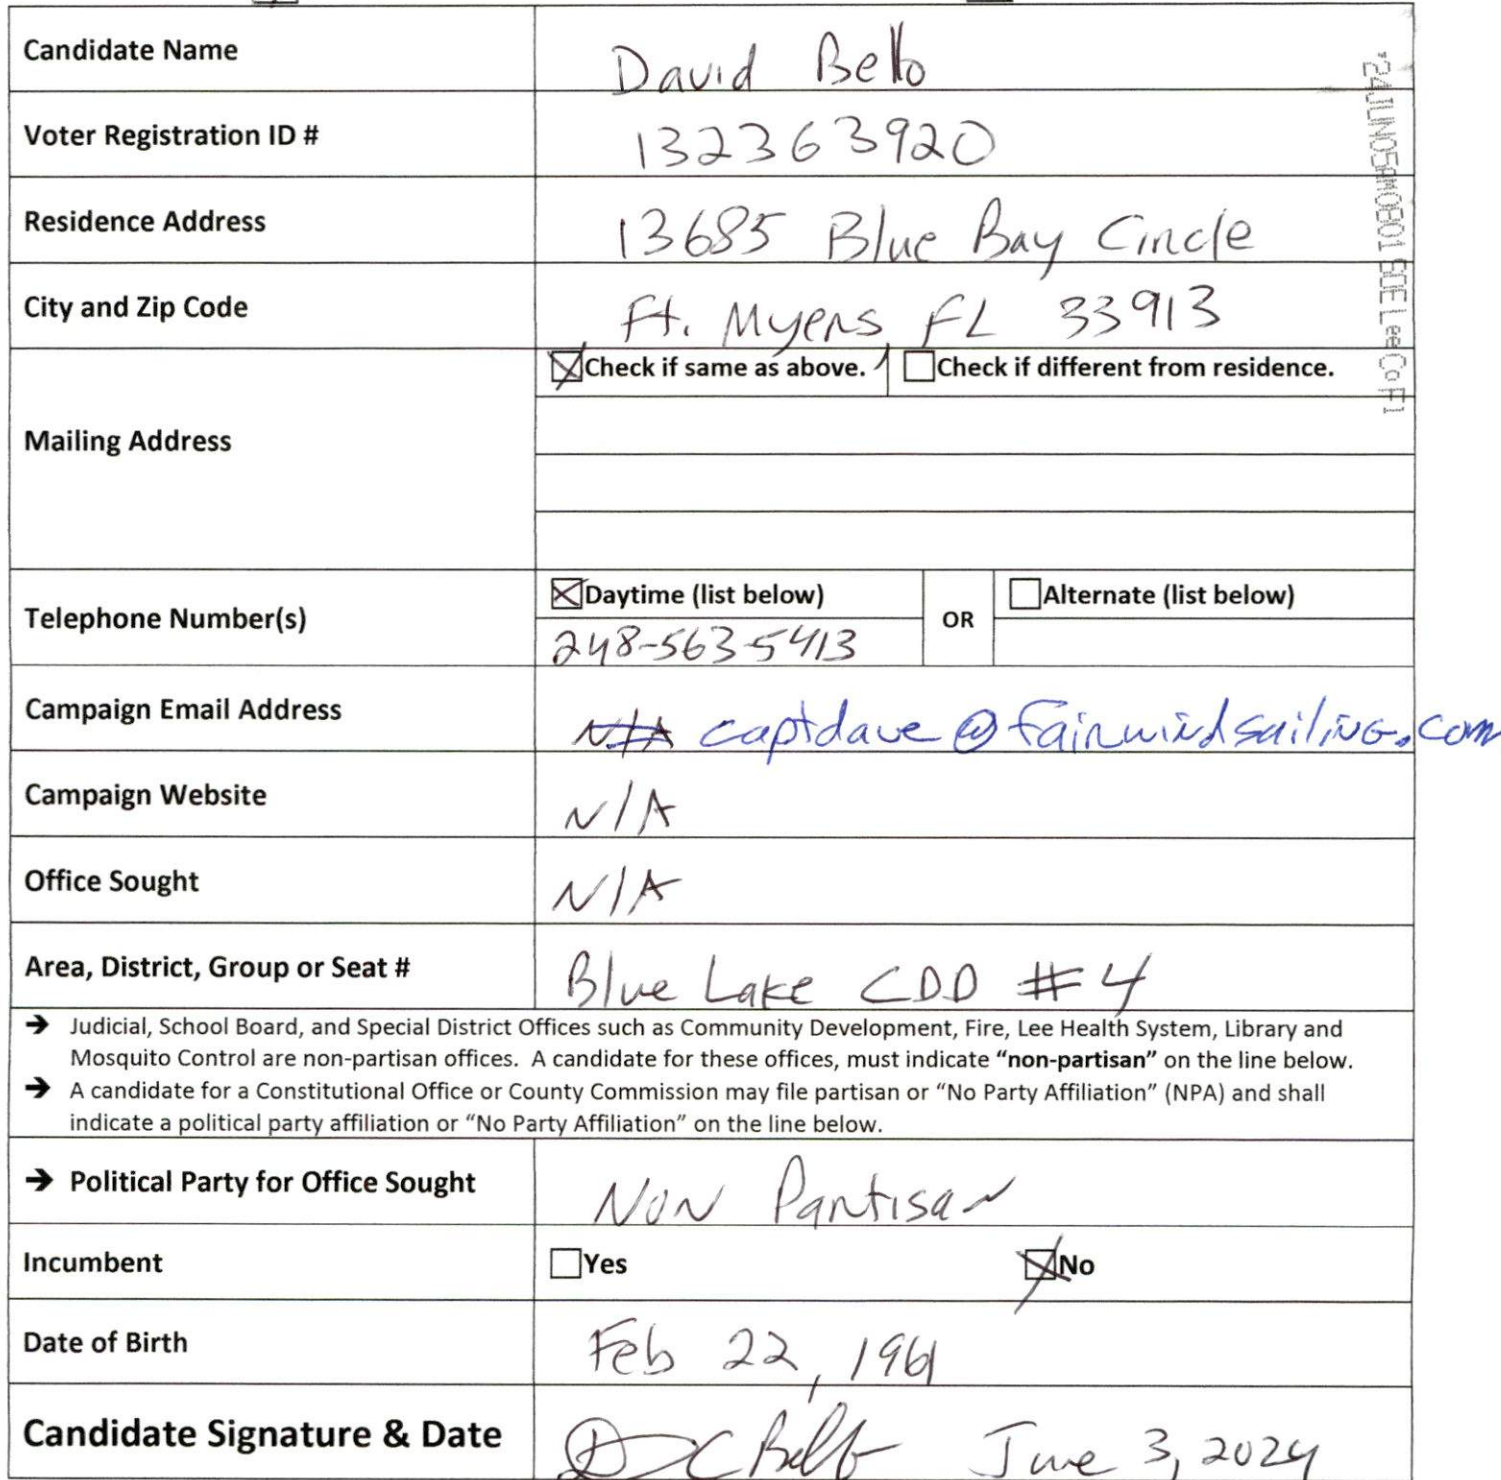 Candidate Name David Bello
Voter Registration ID # 132363920
Residence Address 13685 Blue Bay Circle
City and Zip Code Ft. Myers, FL 33913
Mailing Address
☒ Check if same as above. ☐ Check if different from residence.
Telephone Number(s)
☒ Daytime (list below) OR ☐ Alternate (list below)
248-563-5413
Campaign Email Address N/A captdave@fairwindsailing.com
Campaign Website N/A
Office Sought N/A
Area, District, Group or Seat # Blue Lake CDD #4
→ Judicial, School Board, and Special District Offices such as Community Development, Fire, Lee Health System, Library and
Mosquito Control are non-partisan offices. A candidate for these offices, must indicate “non-partisan” on the line below.
→ A candidate for a Constitutional Office or County Commission may file partisan or “No Party Affiliation” (NPA) and shall
indicate a political party affiliation or “No Party Affiliation” on the line below.
→ Political Party for Office Sought Non Partisan
Incumbent ☐ Yes ☒ No
Date of Birth Feb 22, 1961
Candidate Signature & Date D C Bello June 3, 2024
'24JUN05AM0801 SOE Lee Co Fl